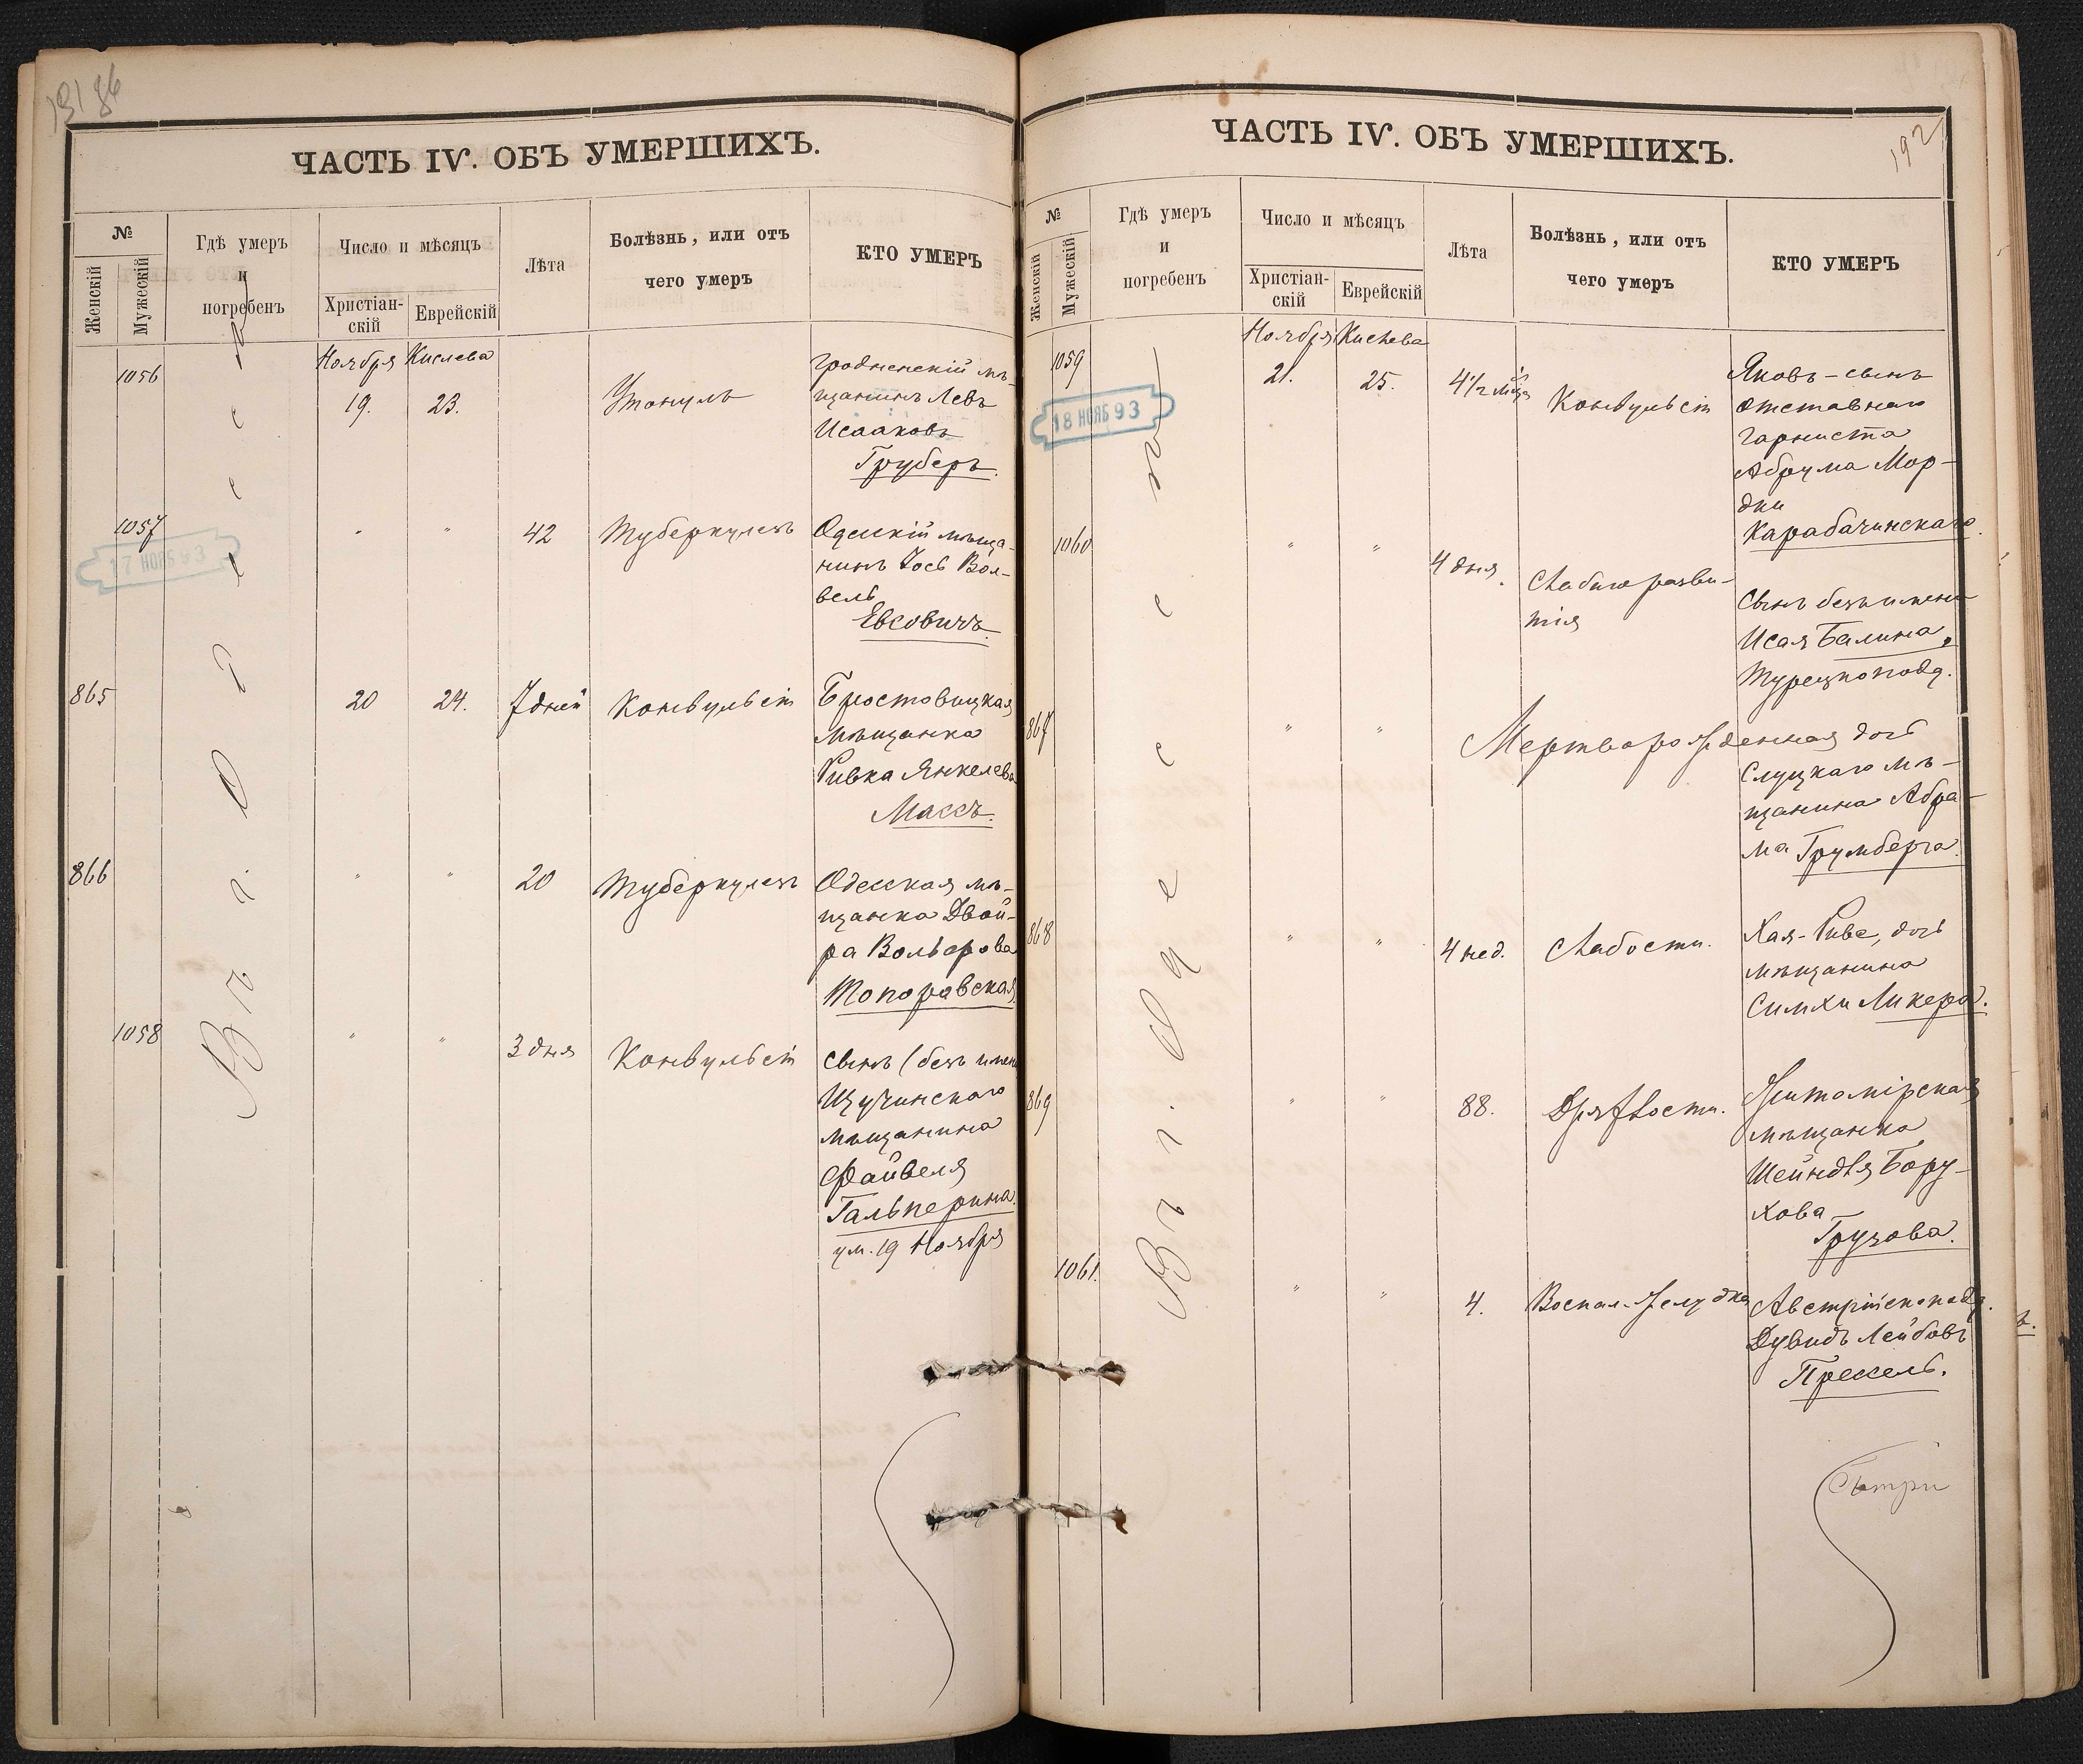 ЧАСТЬ IV. ОБЪ УМЕРШИХЪ.
№
Женскій
Мужескій
Гдѣ умеръ
и
погребенъ
Число и мѣсяцъ
Христіан-
скій
Еврейскій
Лѣта
Болѣзнь, или отъ
чего умеръ
КТО УМЕРЪ
Въ г. Одессѣ
Ноября Кислева
1056
19. 23.
Утонулъ
Гродненскій мѣ-
щанинъ Левъ
Исааковъ
Груберъ.
1057
17 НОЯБ 93
" "
42
Туберкулезъ
Одесскій мѣща-
нинъ Іось Вол-
вель
Евсовичъ.
865
20 24.
7 дней
Конвульсіи
Бростовицкая
мѣщанка
Ривка Янкелева
Массъ.
866
" "
20
Туберкулезъ
Одесская мѣ-
щанка Двой-
ра Вольфова
Топоровская
1058
" "
3 дня
Конвульсіи
Сынъ (безъ имени
Щучинскаго
мѣщанина
Файвеля
Гальперина.
ум. 19 Ноября
ЧАСТЬ IV. ОБЪ УМЕРШИХЪ.
192
№
Женскій
Мужескій
Гдѣ умеръ
и
погребенъ
Число и мѣсяцъ
Христіан-
скій
Еврейскій
Лѣта
Болѣзнь, или отъ
чего умеръ
КТО УМЕРЪ
Въ г. Одессѣ
Ноября Кислева
1059
18 НОЯБ 93
21. 25.
4 1/2 мѣс
Конвульсіи
Яковъ - сынъ
отставнаго
горниста
Абрума Мор-
дки
Карабачинскаго.
1060
" "
4 дня.
Слабаго разви-
тія
Сынъ безъ имени
Исая Балина,
Турецкоподд.
867
" "
Мертворожденная дочь
Слуцкаго мѣ-
щанина Абра-
ма Грумберга.
868
" "
4 нед.
Слабости.
Хая-Рива, дочь
мѣщанина
Симхи Ликера.
869
" "
88.
Дряхлости.
Житомірская
мѣщанка
Шейндля Бору-
хова
Грузова.
1061.
" "
4.
Воспал. желудка
Австрійскоподд.
Дувидъ Лейбовъ
Прессель.